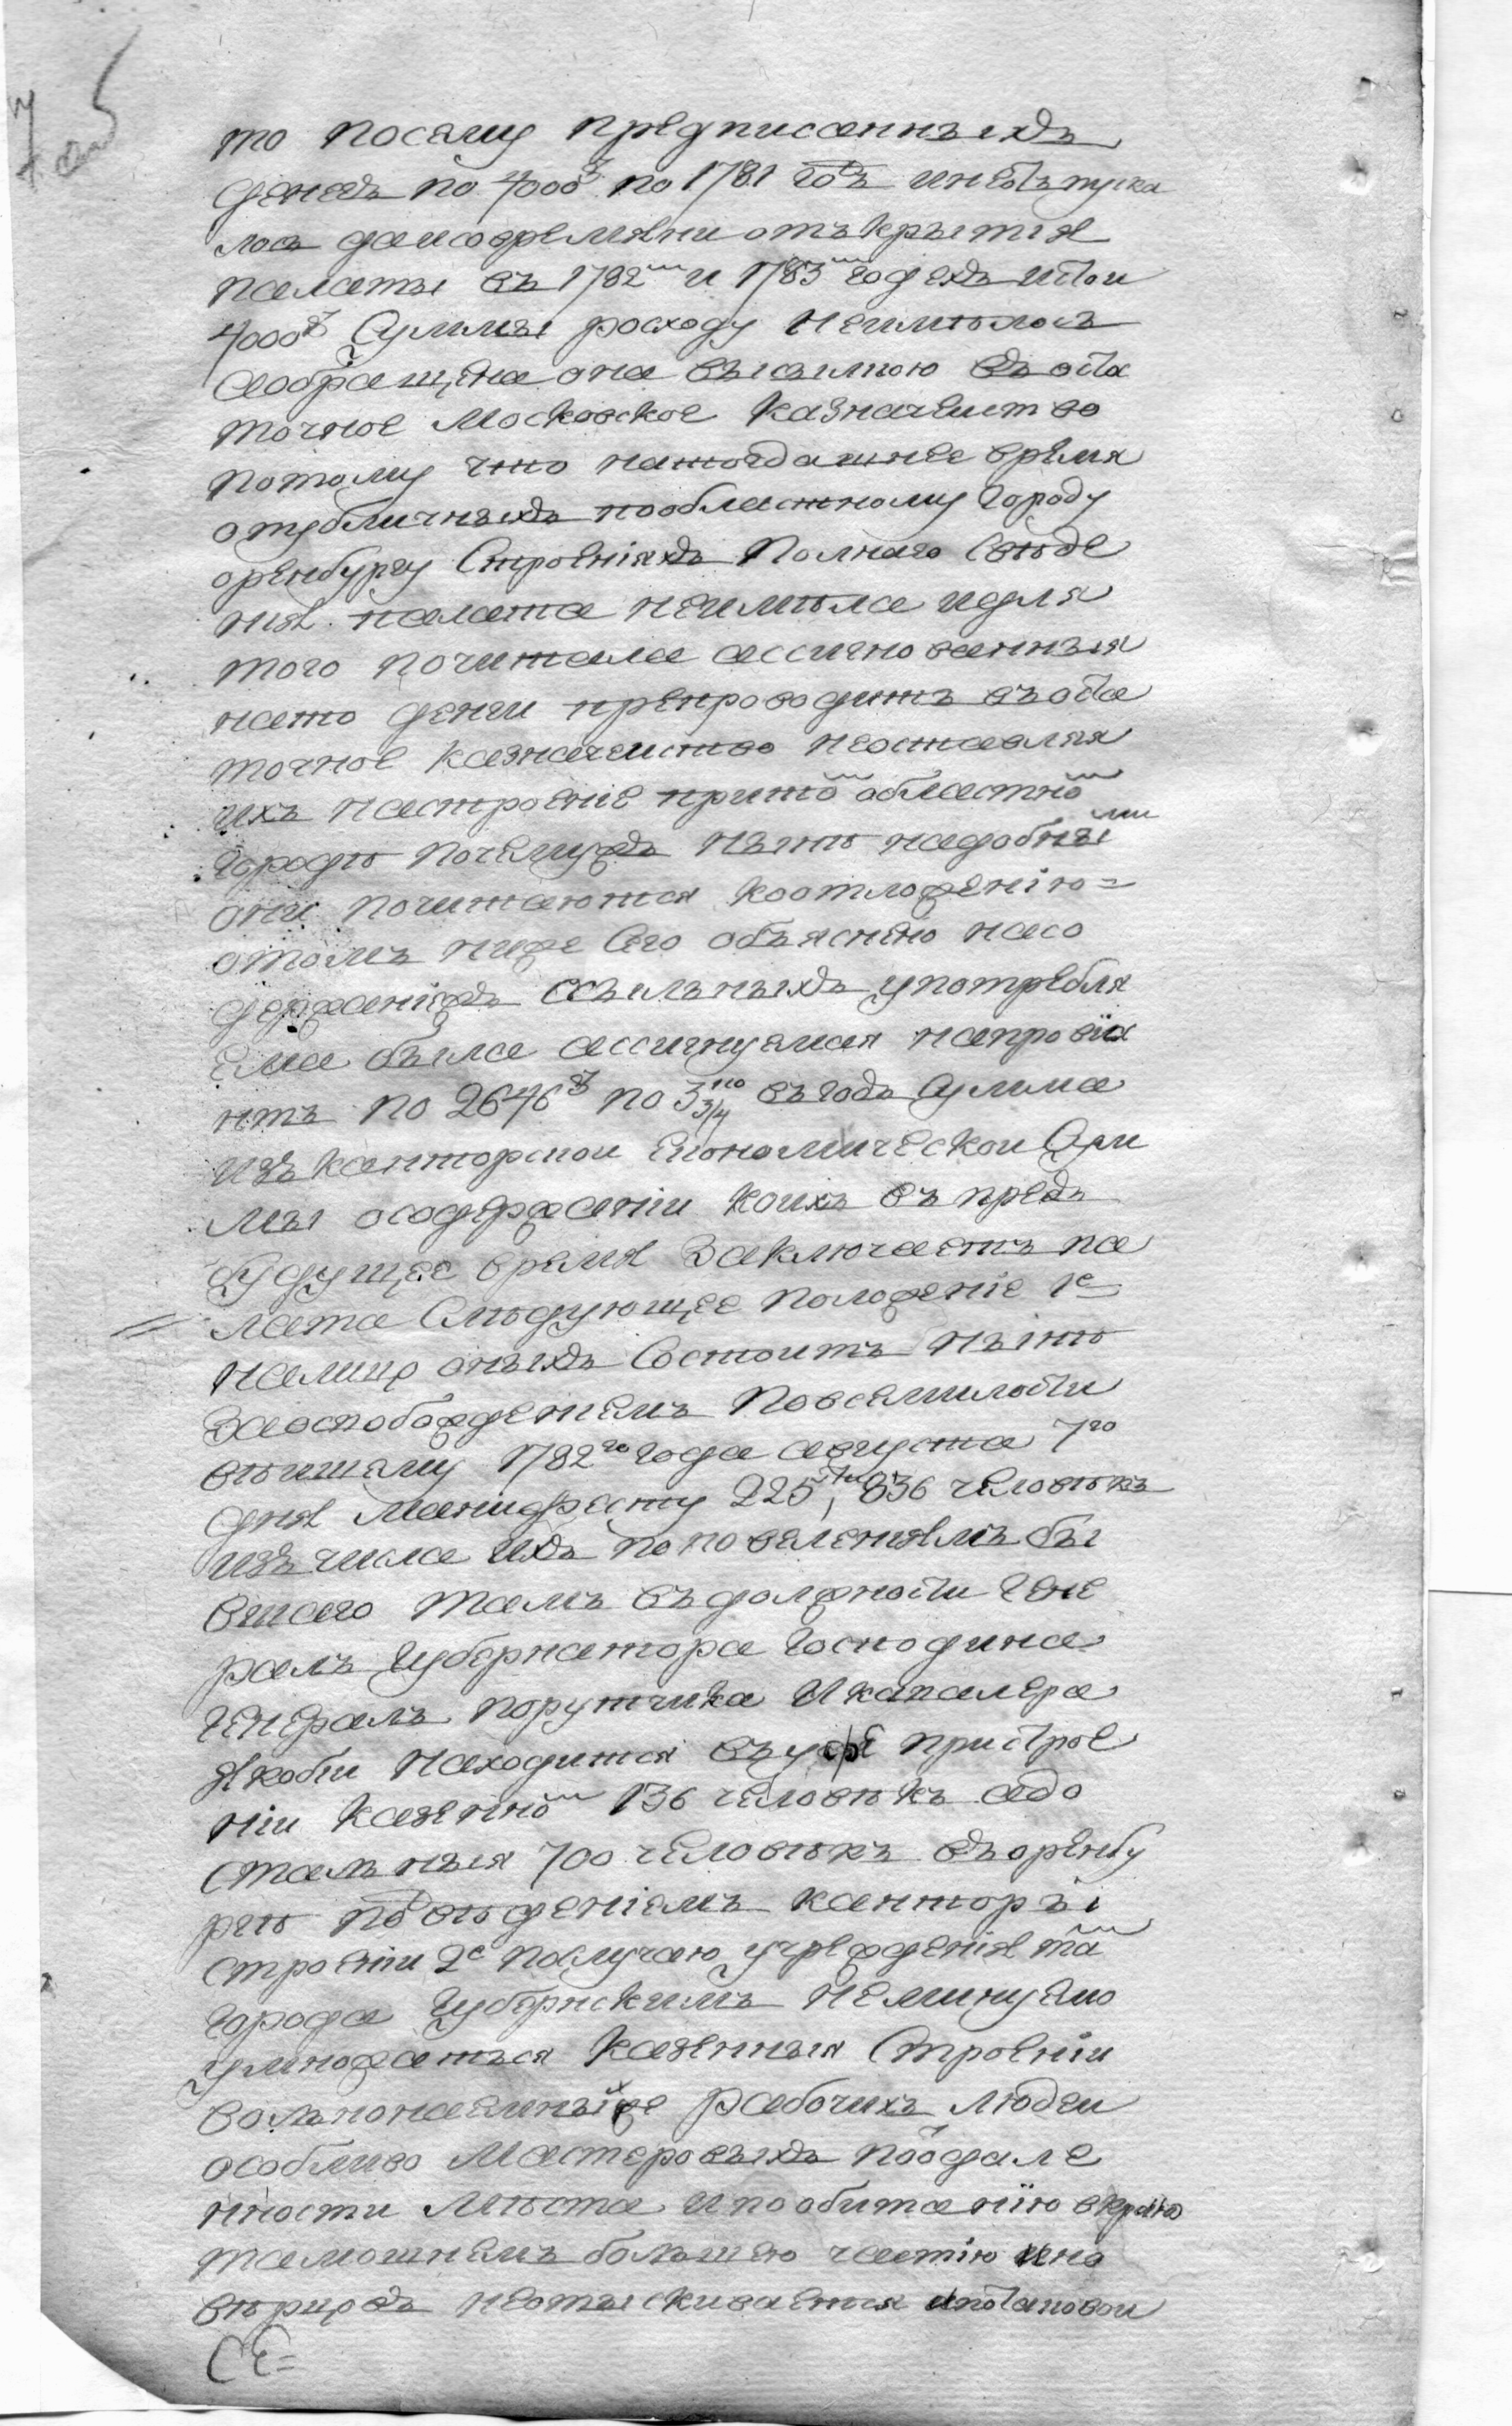 то посему предписанныхъ
денегъ по 4000 р по 1781 годъ инеотъпуска
лось даисовремяни отъкрытия
палаты въ 1782м и 1783м годехъ итои
4000р Суммы росходу неимелось
аобращена она въсилмою въ оста
точное Московское казначеиство
потому что натогдашнее время
опубличныхъ пообластному городу
оренбургу Строенияхъ полнаго Сведе
ния палата неимела идля
того почитала ассигнованныя
нато денги препроводить въоста
точное казначеиство неоставляя
ихъ настроение притом областном
городе почемужъ ныне надобными
они почитаются коотложению=
отомъ ниже Сего объяснено насо
держанияжъ ссыльныхъ употребля
ема была ассигнуемая напровиа
нтъ по 2646р по 3 3/4 въгодъ Сумма
изъ канторской Економической Сум
мы осодержании коихъ въ предъ
будущее время Заключаетъ па
лата Следующее положение 1е
налицо оныхъ Состоитъ ныне
Заосвобождениемъ повсемилости
вейшему 1782го года августа 7го
дня манифесту 225ти, 836 человекъ
изъ числа ихъ по повелениямъ бы
вшаго тамъ въдолжности Гене
ралъ Губернатора Господина
Генералъ порутчика Икавалера
Якоби находится въуфе пристрое
нии казенном 136 человекъ адо
стальныя 700 человекъ въоренбу
рге подведениемъ канторы
строении 2е послучаю учреждения там
города Губернскимъ неминуемо
умножатъся казенныя Строении
волнонаемныхже рабочихъ людеи
особливо мастеровыхъ поодале
нности места ипообитанию вкраю
тамошнемъ большею частию ино
верцовъ неотыскивается ипотаковои
СЕ=